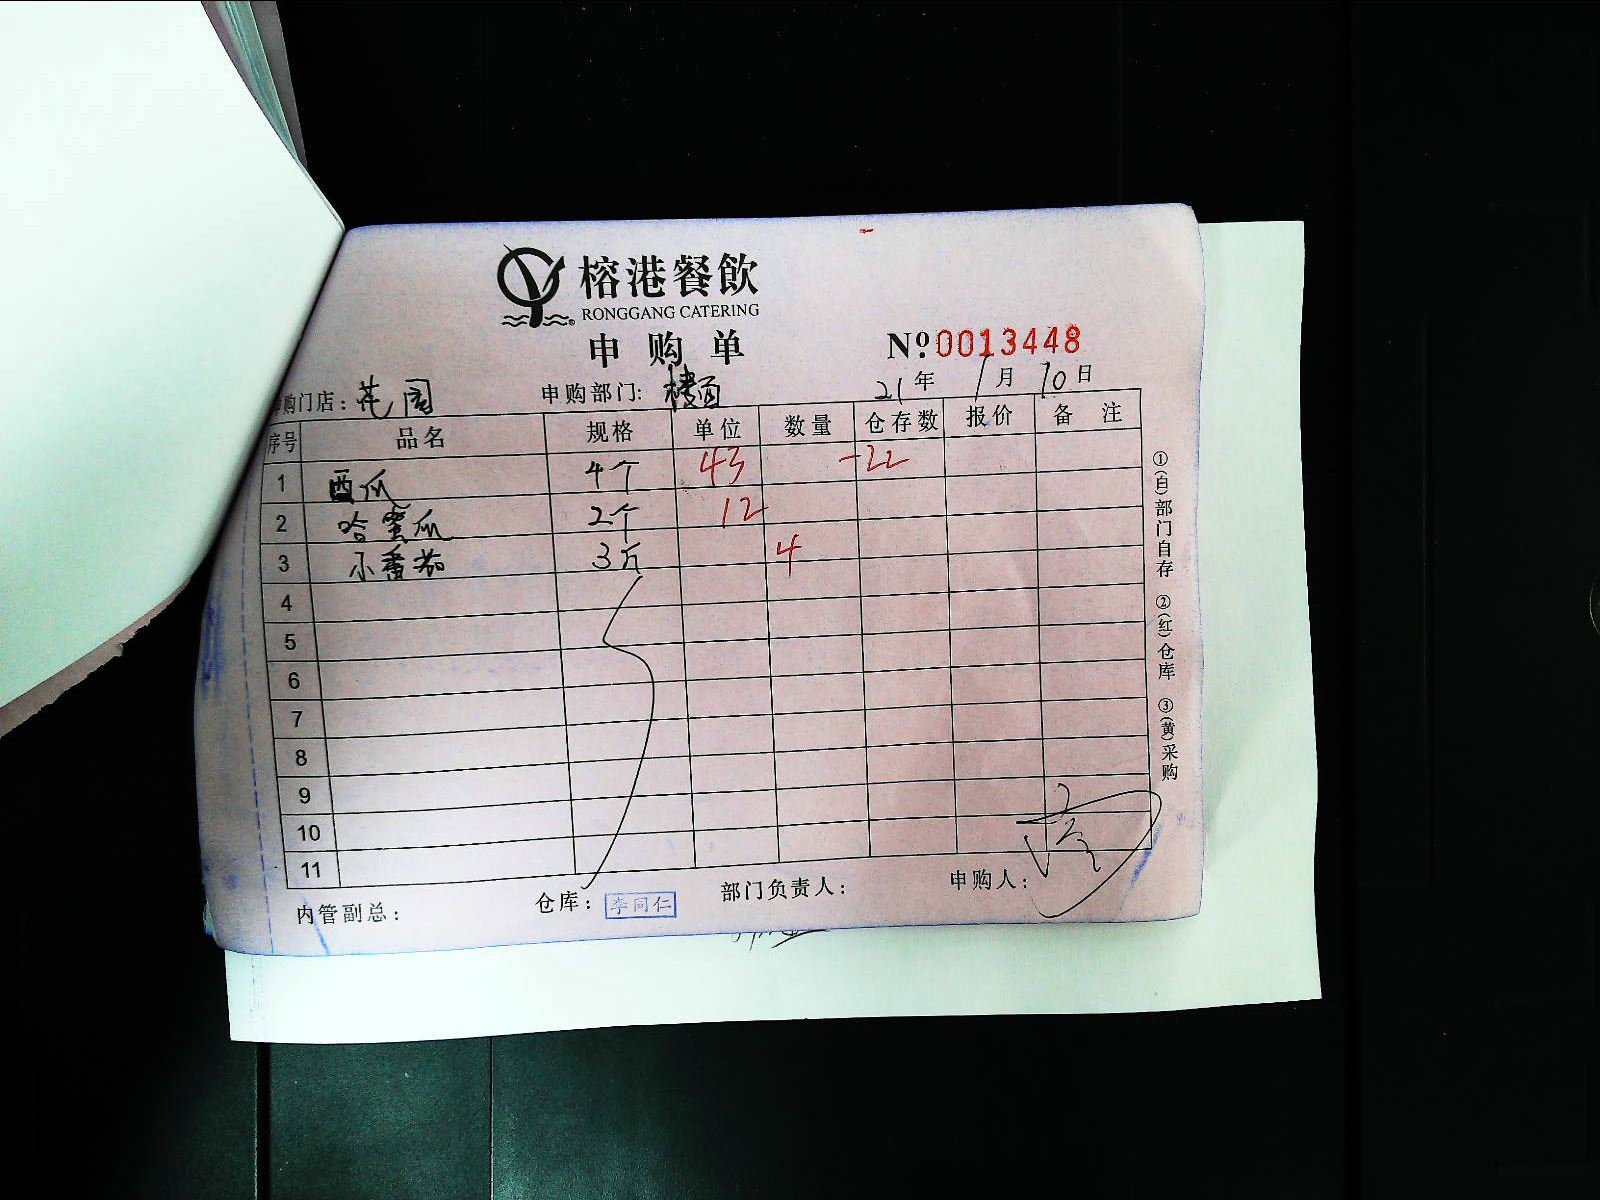 榕港餐飲
RONGGANG CATERING
申购单 Nº 0013448
购门店：花园 申购部门：楼面 21年1月10日
序号 品名 规格 单位 数量 仓存数 报价 备注
1 西瓜 4个 43 -22
2 哈蜜瓜 2个 12
3 小番茄 3斤 4
4
5
6
7
8
9
10
11
内管副总： 仓库：李同仁 部门负责人： 申购人：
①(白)部门自存 ②(红)仓库 ③(黄)采购